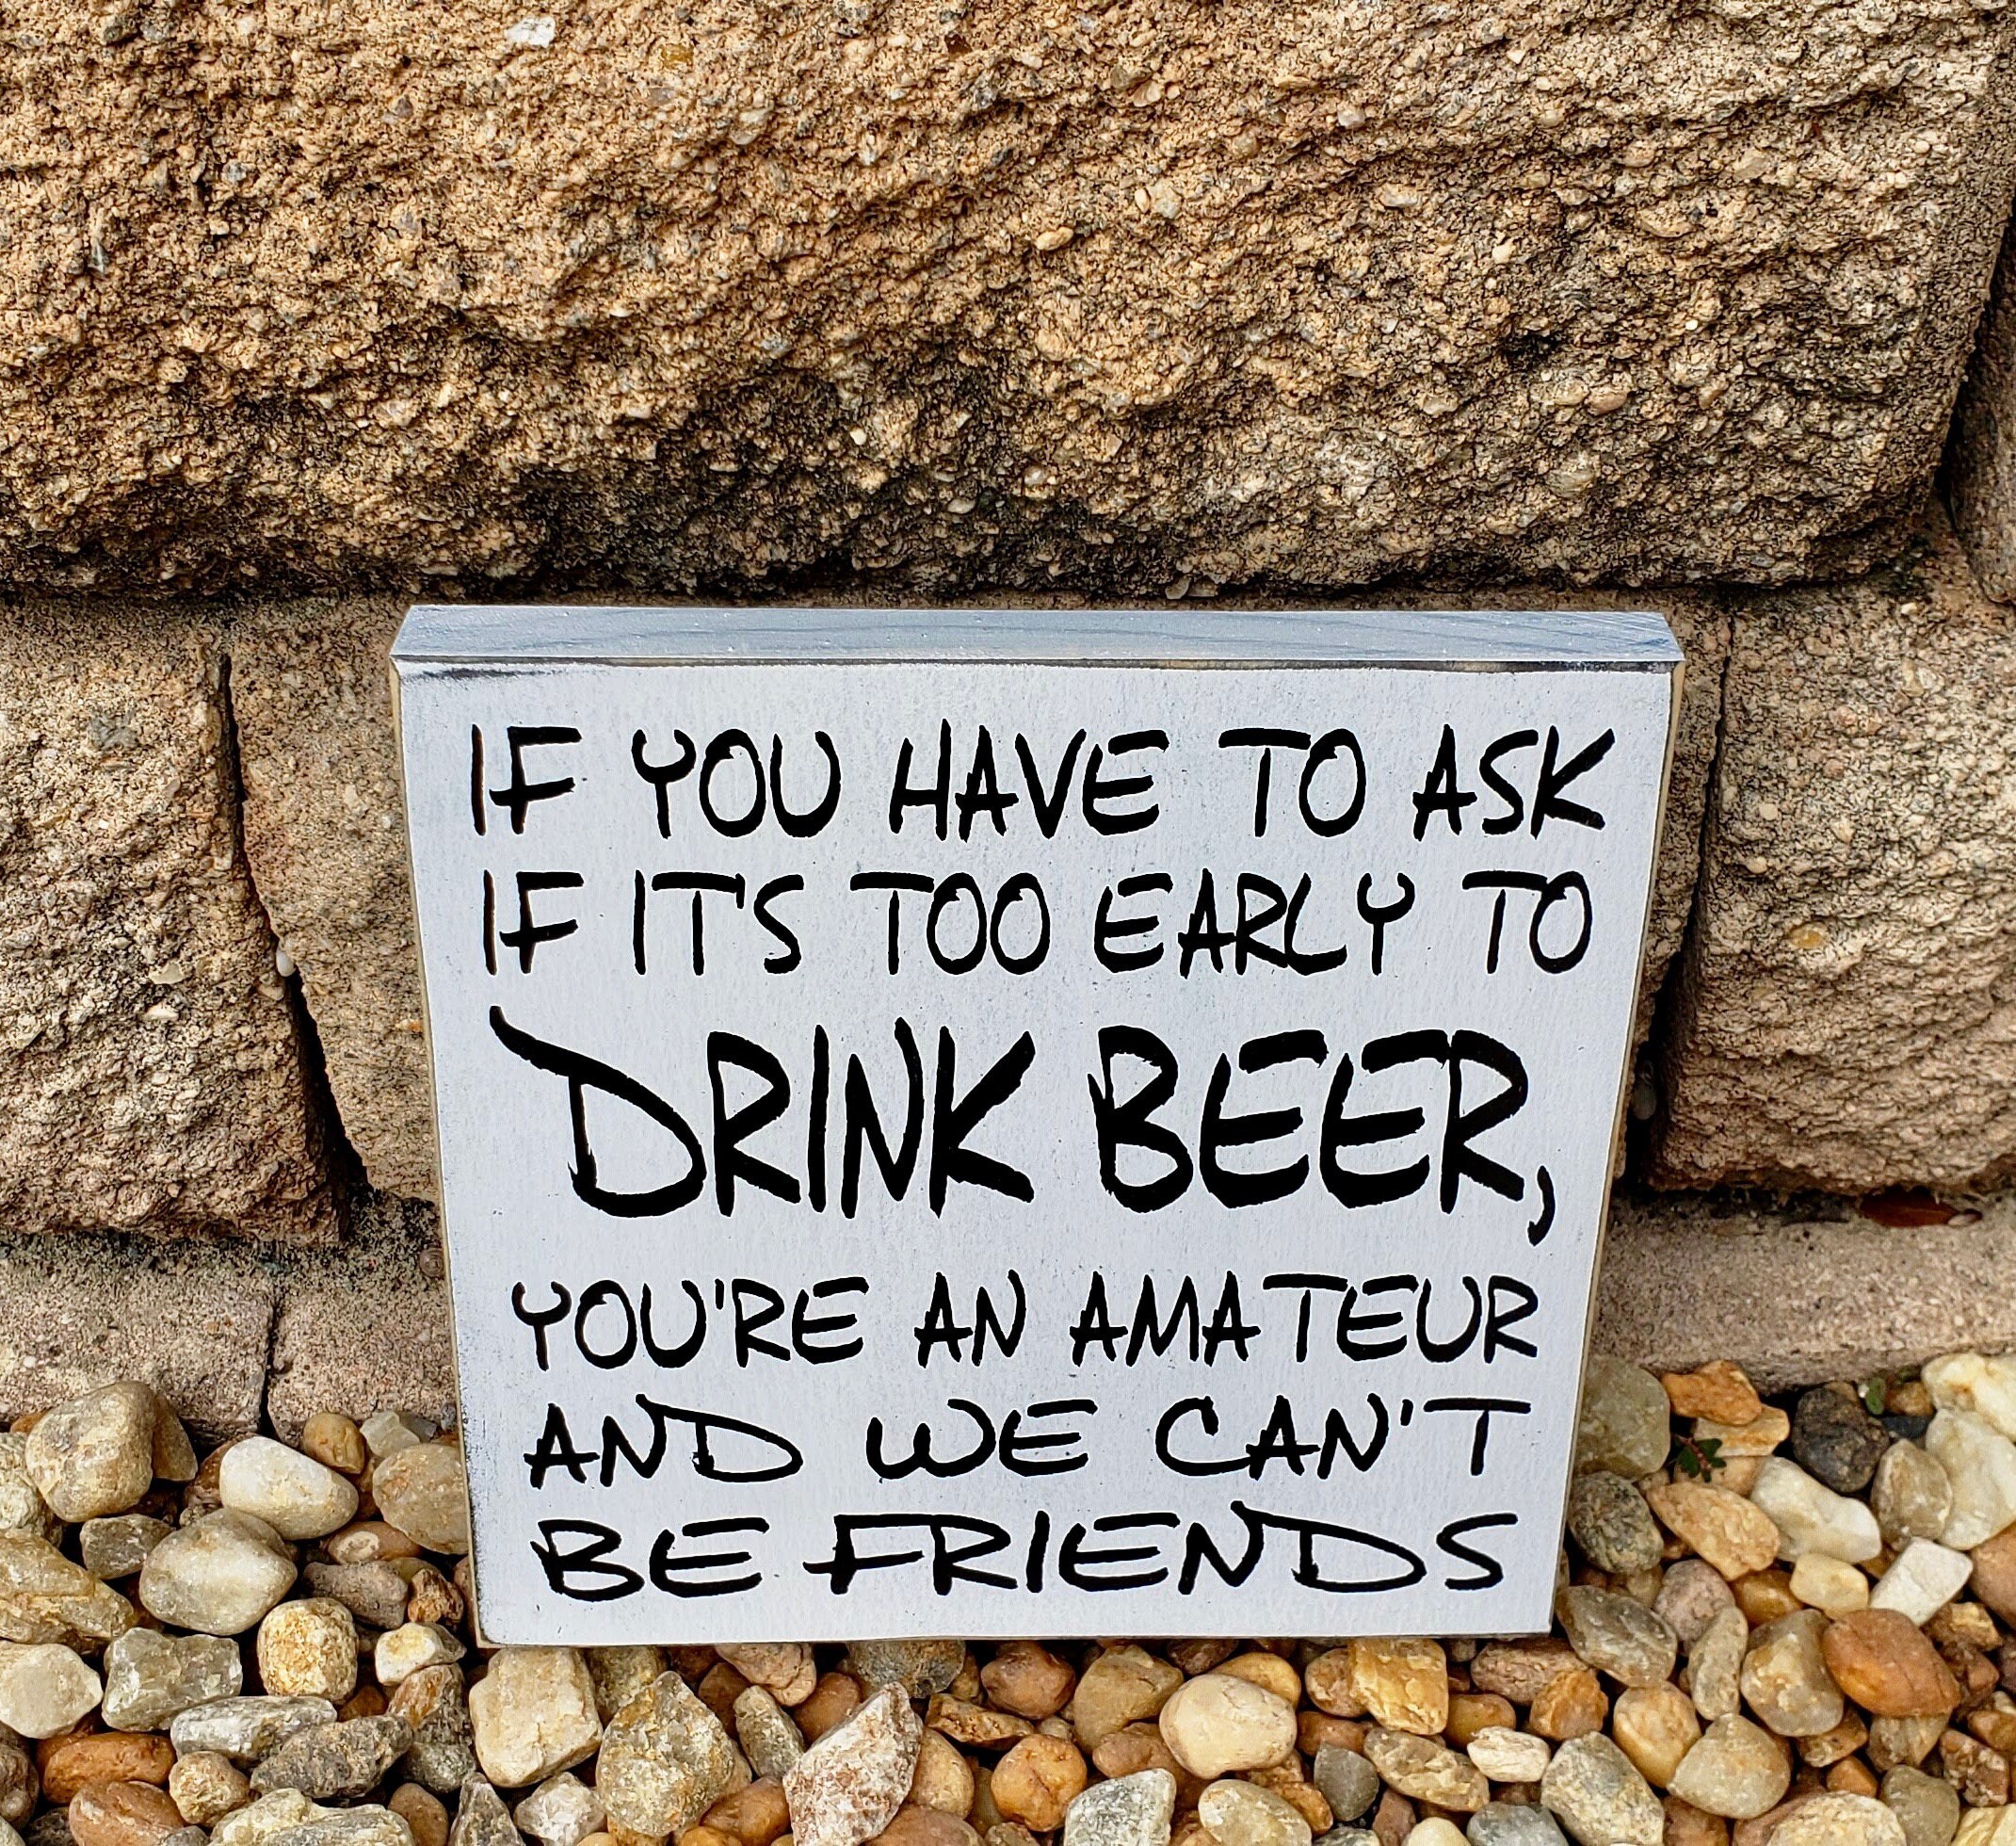 IF YOU HAVE TO ASK
IF IT'S TOO EARLY TO
DRINK BEER,
YOU'RE AN AMATEUR
AND WE CAN'T
BE FRIENDS